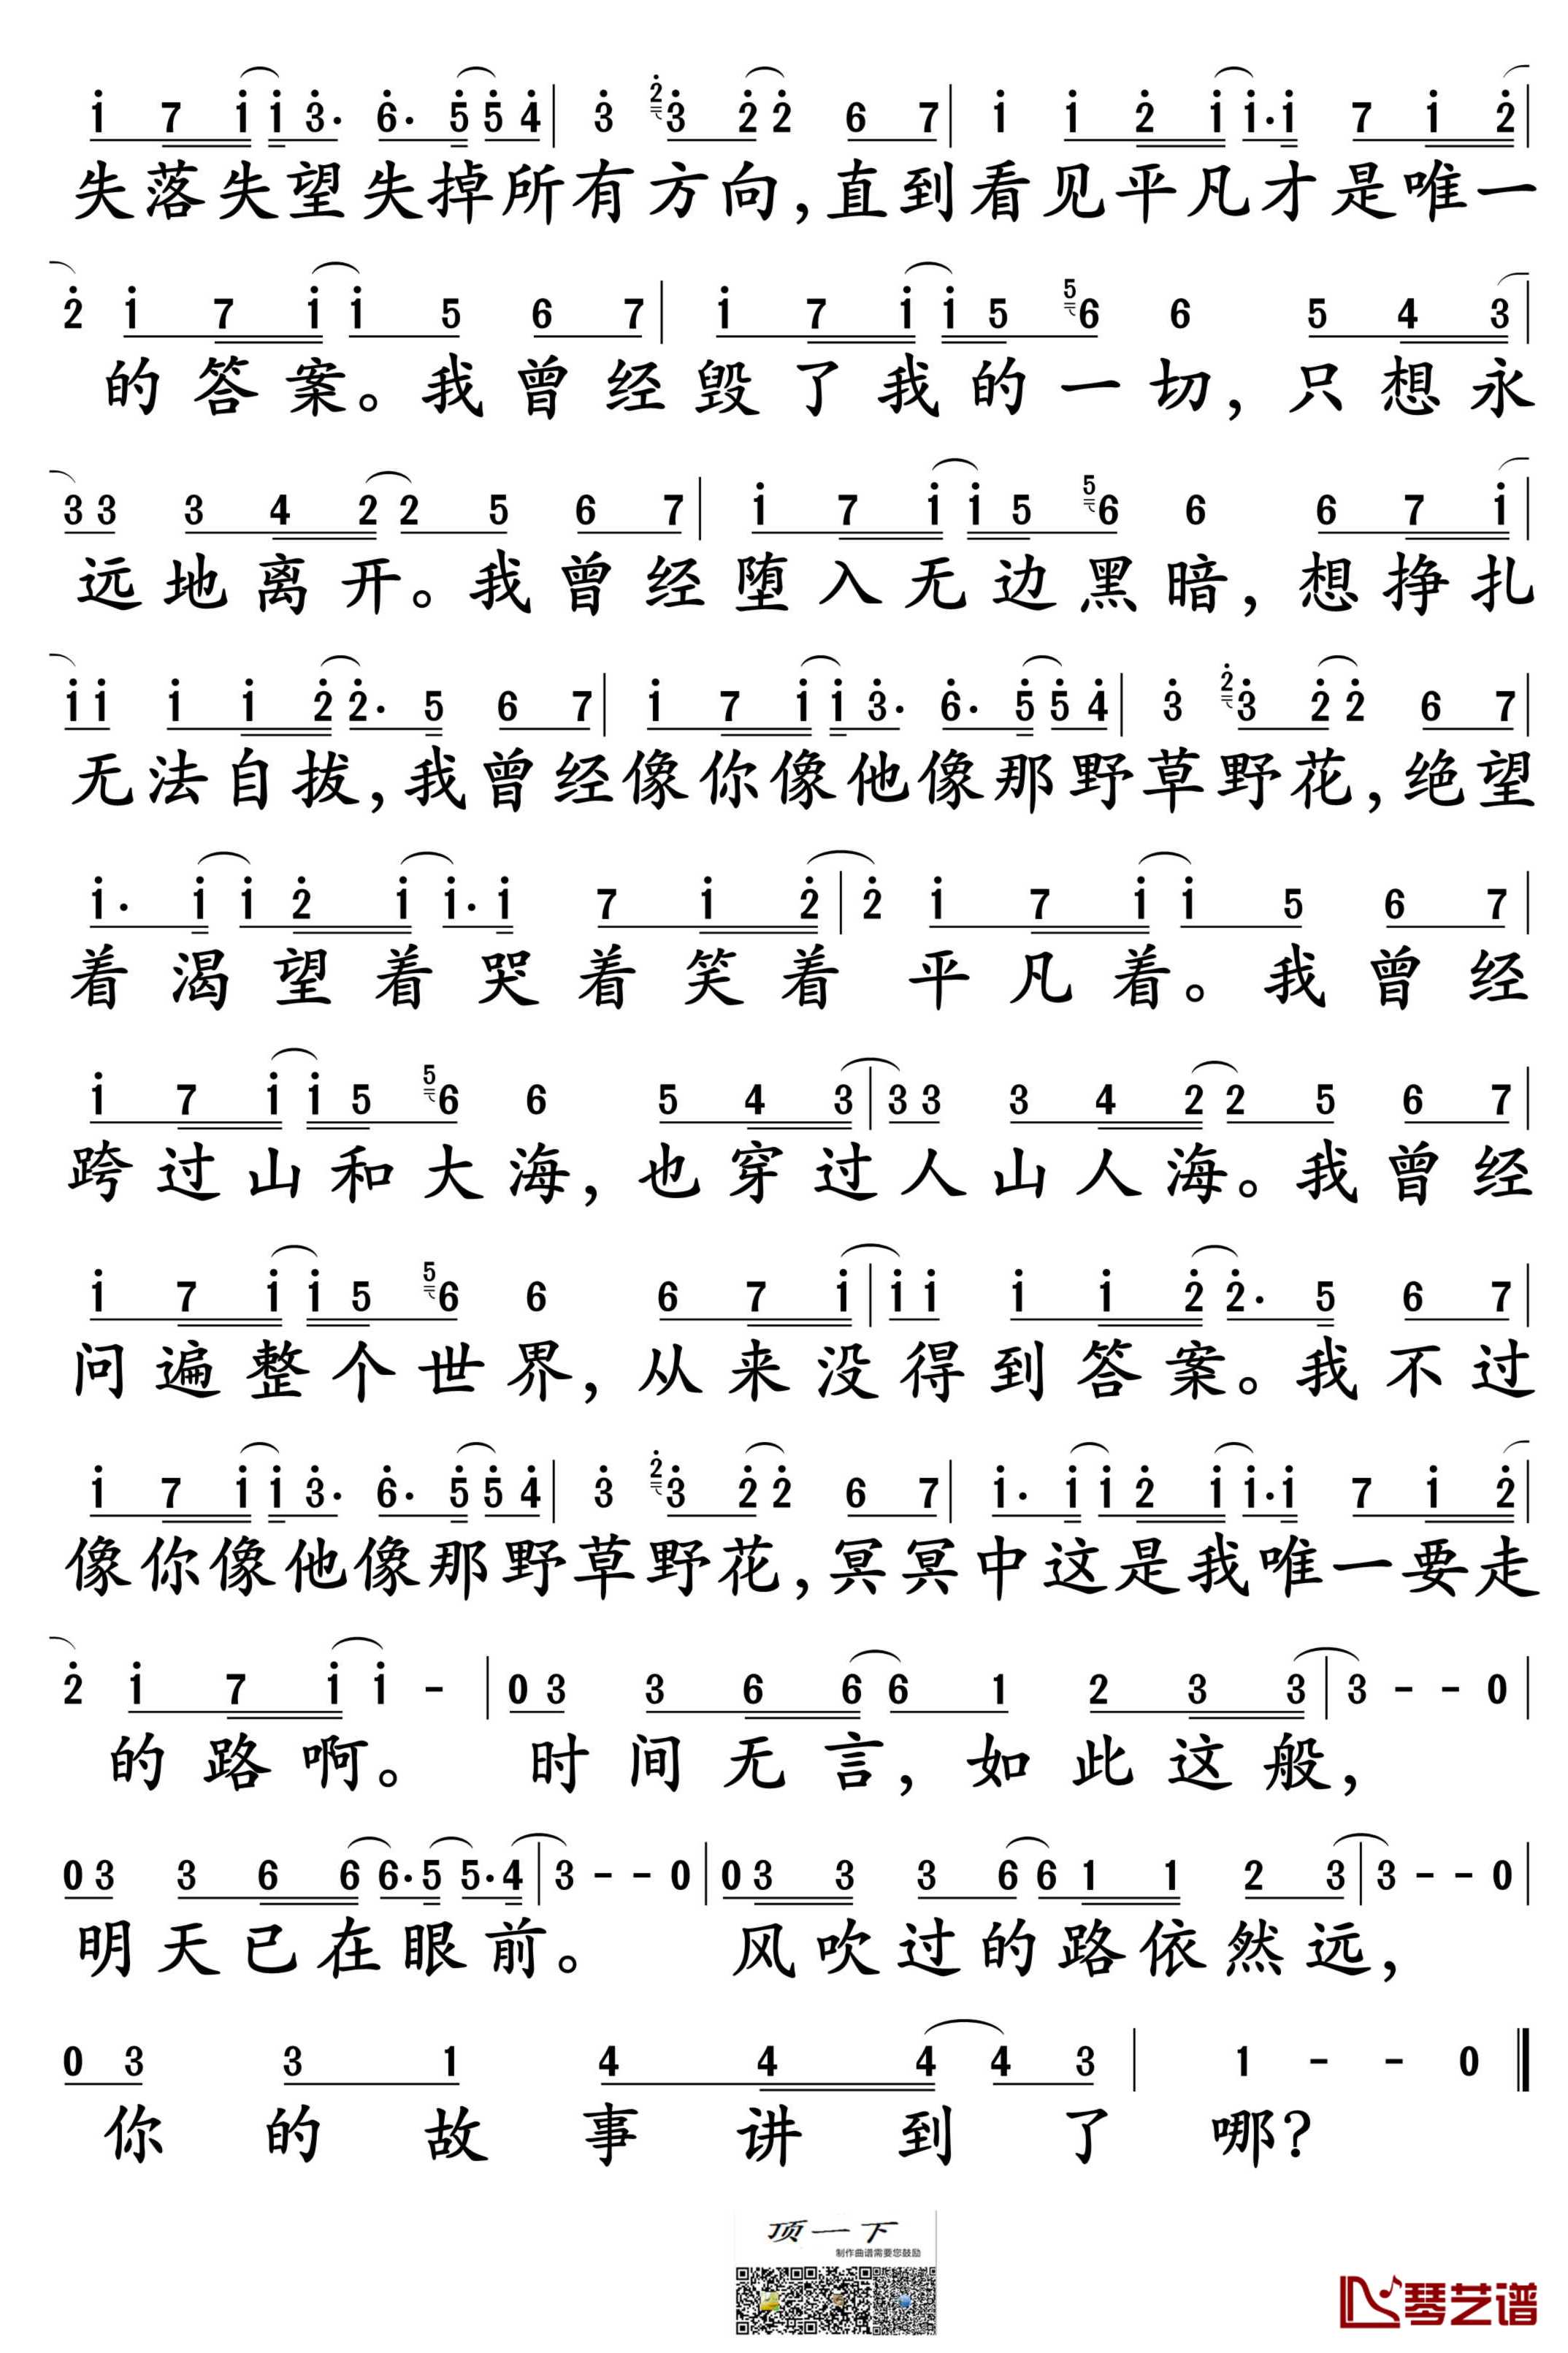 i 7 i i 3· 6· 5 5 4 | 3 2 3 2 2 6 7 | i i 2 i i· i 7 i 2 |
失落失望失掉所有方向,直到看见平凡才是唯一
2 i 7 i i 5 6 7 | i 7 i i 5 5 6 6 5 4 3 |
的答案。我曾经毁了我的一切,只想永
3 3 3 4 2 2 5 6 7 | i 7 i i 5 5 6 6 6 7 i |
远地离开。我曾经堕入无边黑暗,想挣扎
i i i i 2 2· 5 6 7 | i 7 i i 3· 6· 5 5 4 | 3 2 3 2 2 6 7 |
无法自拔,我曾经像你像他像那野草野花,绝望
i· i i 2 i i· i 7 i 2 | 2 i 7 i i 5 6 7 |
着渴望着哭着笑着平凡着。我曾经
i 7 i i 5 5 6 6 5 4 3 | 3 3 3 4 2 2 5 6 7 |
跨过山和大海,也穿过人山人海。我曾经
i 7 i i 5 5 6 6 6 7 i | i i i i 2 2· 5 6 7 |
问遍整个世界,从来没得到答案。我不过
i 7 i i 3· 6· 5 5 4 | 3 2 3 2 2 6 7 | i· i i 2 i i· i 7 i 2 |
像你像他像那野草野花,冥冥中这是我唯一要走
2 i 7 i i - | 0 3 3 6 6 6 1 2 3 3 | 3 - - 0 |
的路啊。时间无言,如此这般,
0 3 3 6 6 6· 5 5· 4 | 3 - - 0 | 0 3 3 3 6 6 1 1 2 3 | 3 - - 0 |
明天已在眼前。风吹过的路依然远,
0 3 3 1 4 4 4 4 3 | 1 - - 0 ‖
你的故事讲到了哪?
顶一下
制作曲谱需要您鼓励
琴艺谱